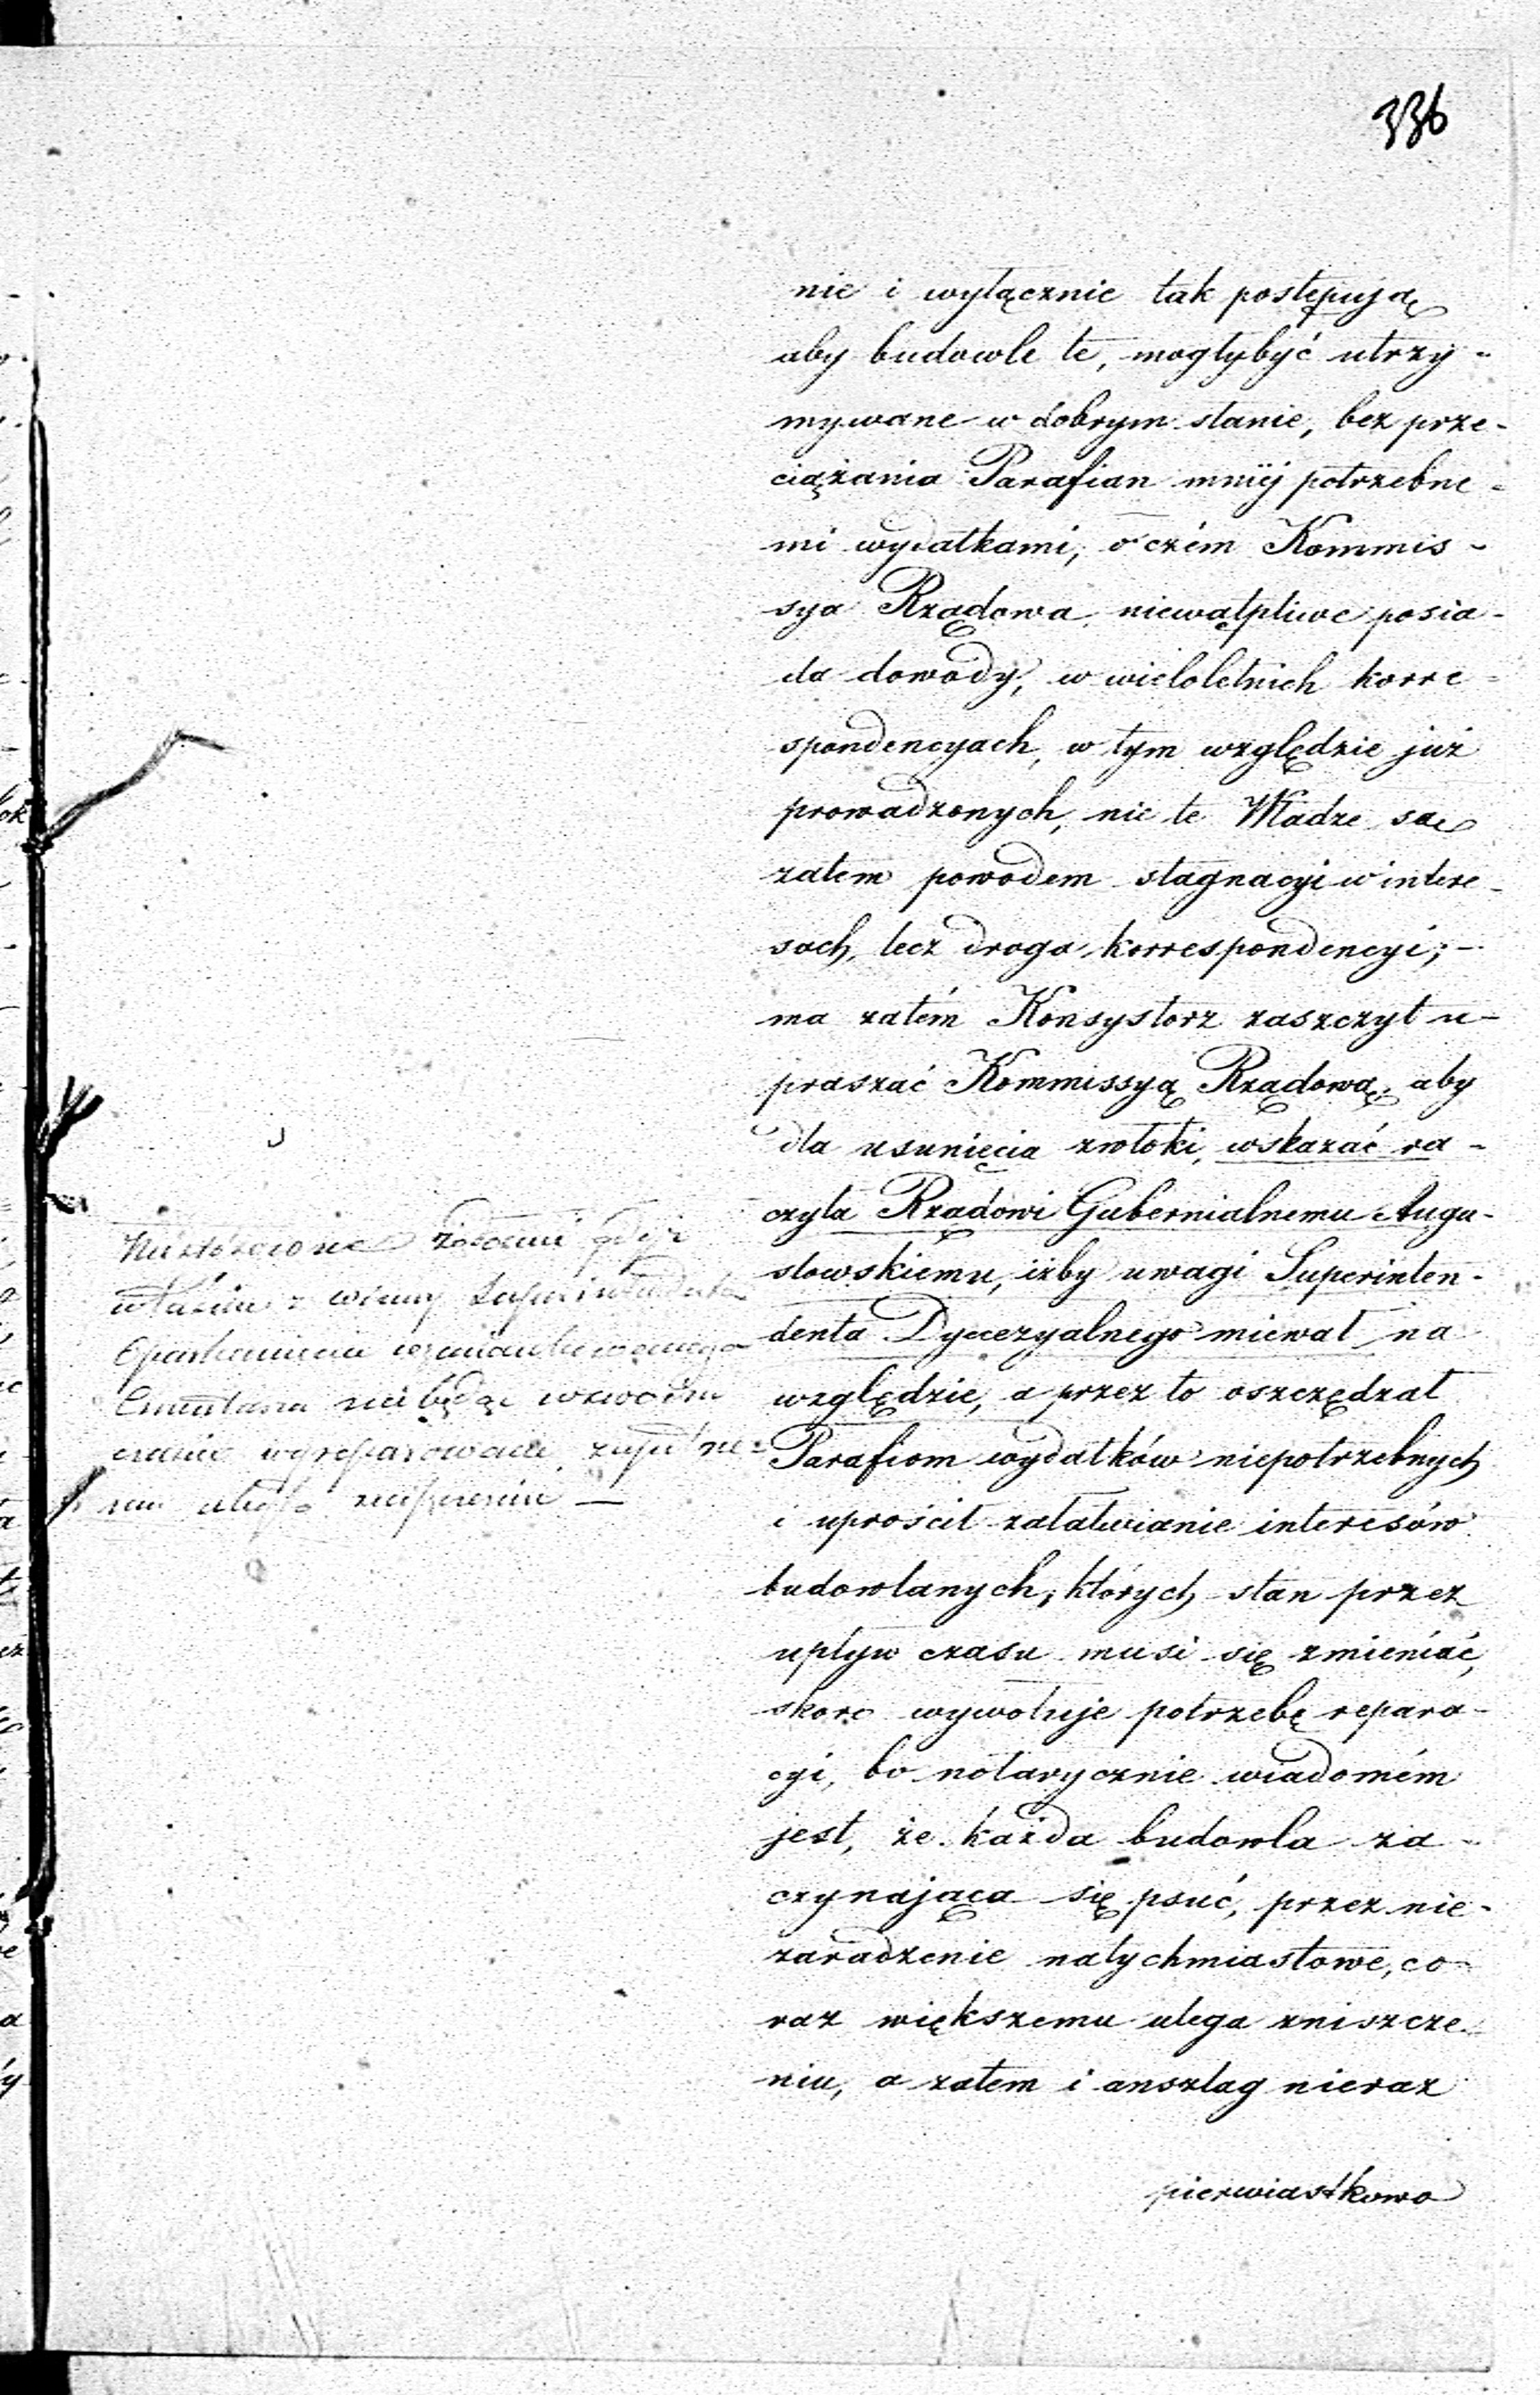 336
nie i wyłącznie tak postępują
aby budowle te, mogłybyć utrzy-
mywane w dobrym stanie, bez prze-
ciążania Parafian mniéj potrzebne-
mi wydatkami, o czém Kommis-
sya Rządowa niewątpliwe posia-
da dowody, w wieloletnich korre-
spondencyach, w tym względzie już
prowadzonych, nie te Władze są
zatem powodem stagnacyi w intere-
sach, lecz droga korrespondencyi; -
ma zatém Konsystorz zaszczyt u-
praszać Kommissyą Rządową, aby
dla usunięcia zwłoki, wskazać ra-
czyła Rządowi Gubernialnemu Augu-
stowskiemu, iżby uwagi Superinten-
denta Dyecezyalnego miewał na
względzie, a przez to oszczędzał
Parafiom wydatków niepotrzebnych
i uprościł załatwianie interesów
budowlanych, których stan przez
upływ czasu musi się zmieniać,
skoro wywołuje potrzebę repara-
cyi, bo notarycznie wiadomém
jest, że każda budowla za-
czynająca się psuć, przez nie-
zaradzenie natychmiastowe, co-
raz większemu ulega zniszcze-
niu, a zatem i anszlag nieraz
pierwiastkowo
z winy
Cmentarza nie będąc
wyreparowane zupełne-
mu uległo zniszczeniu —